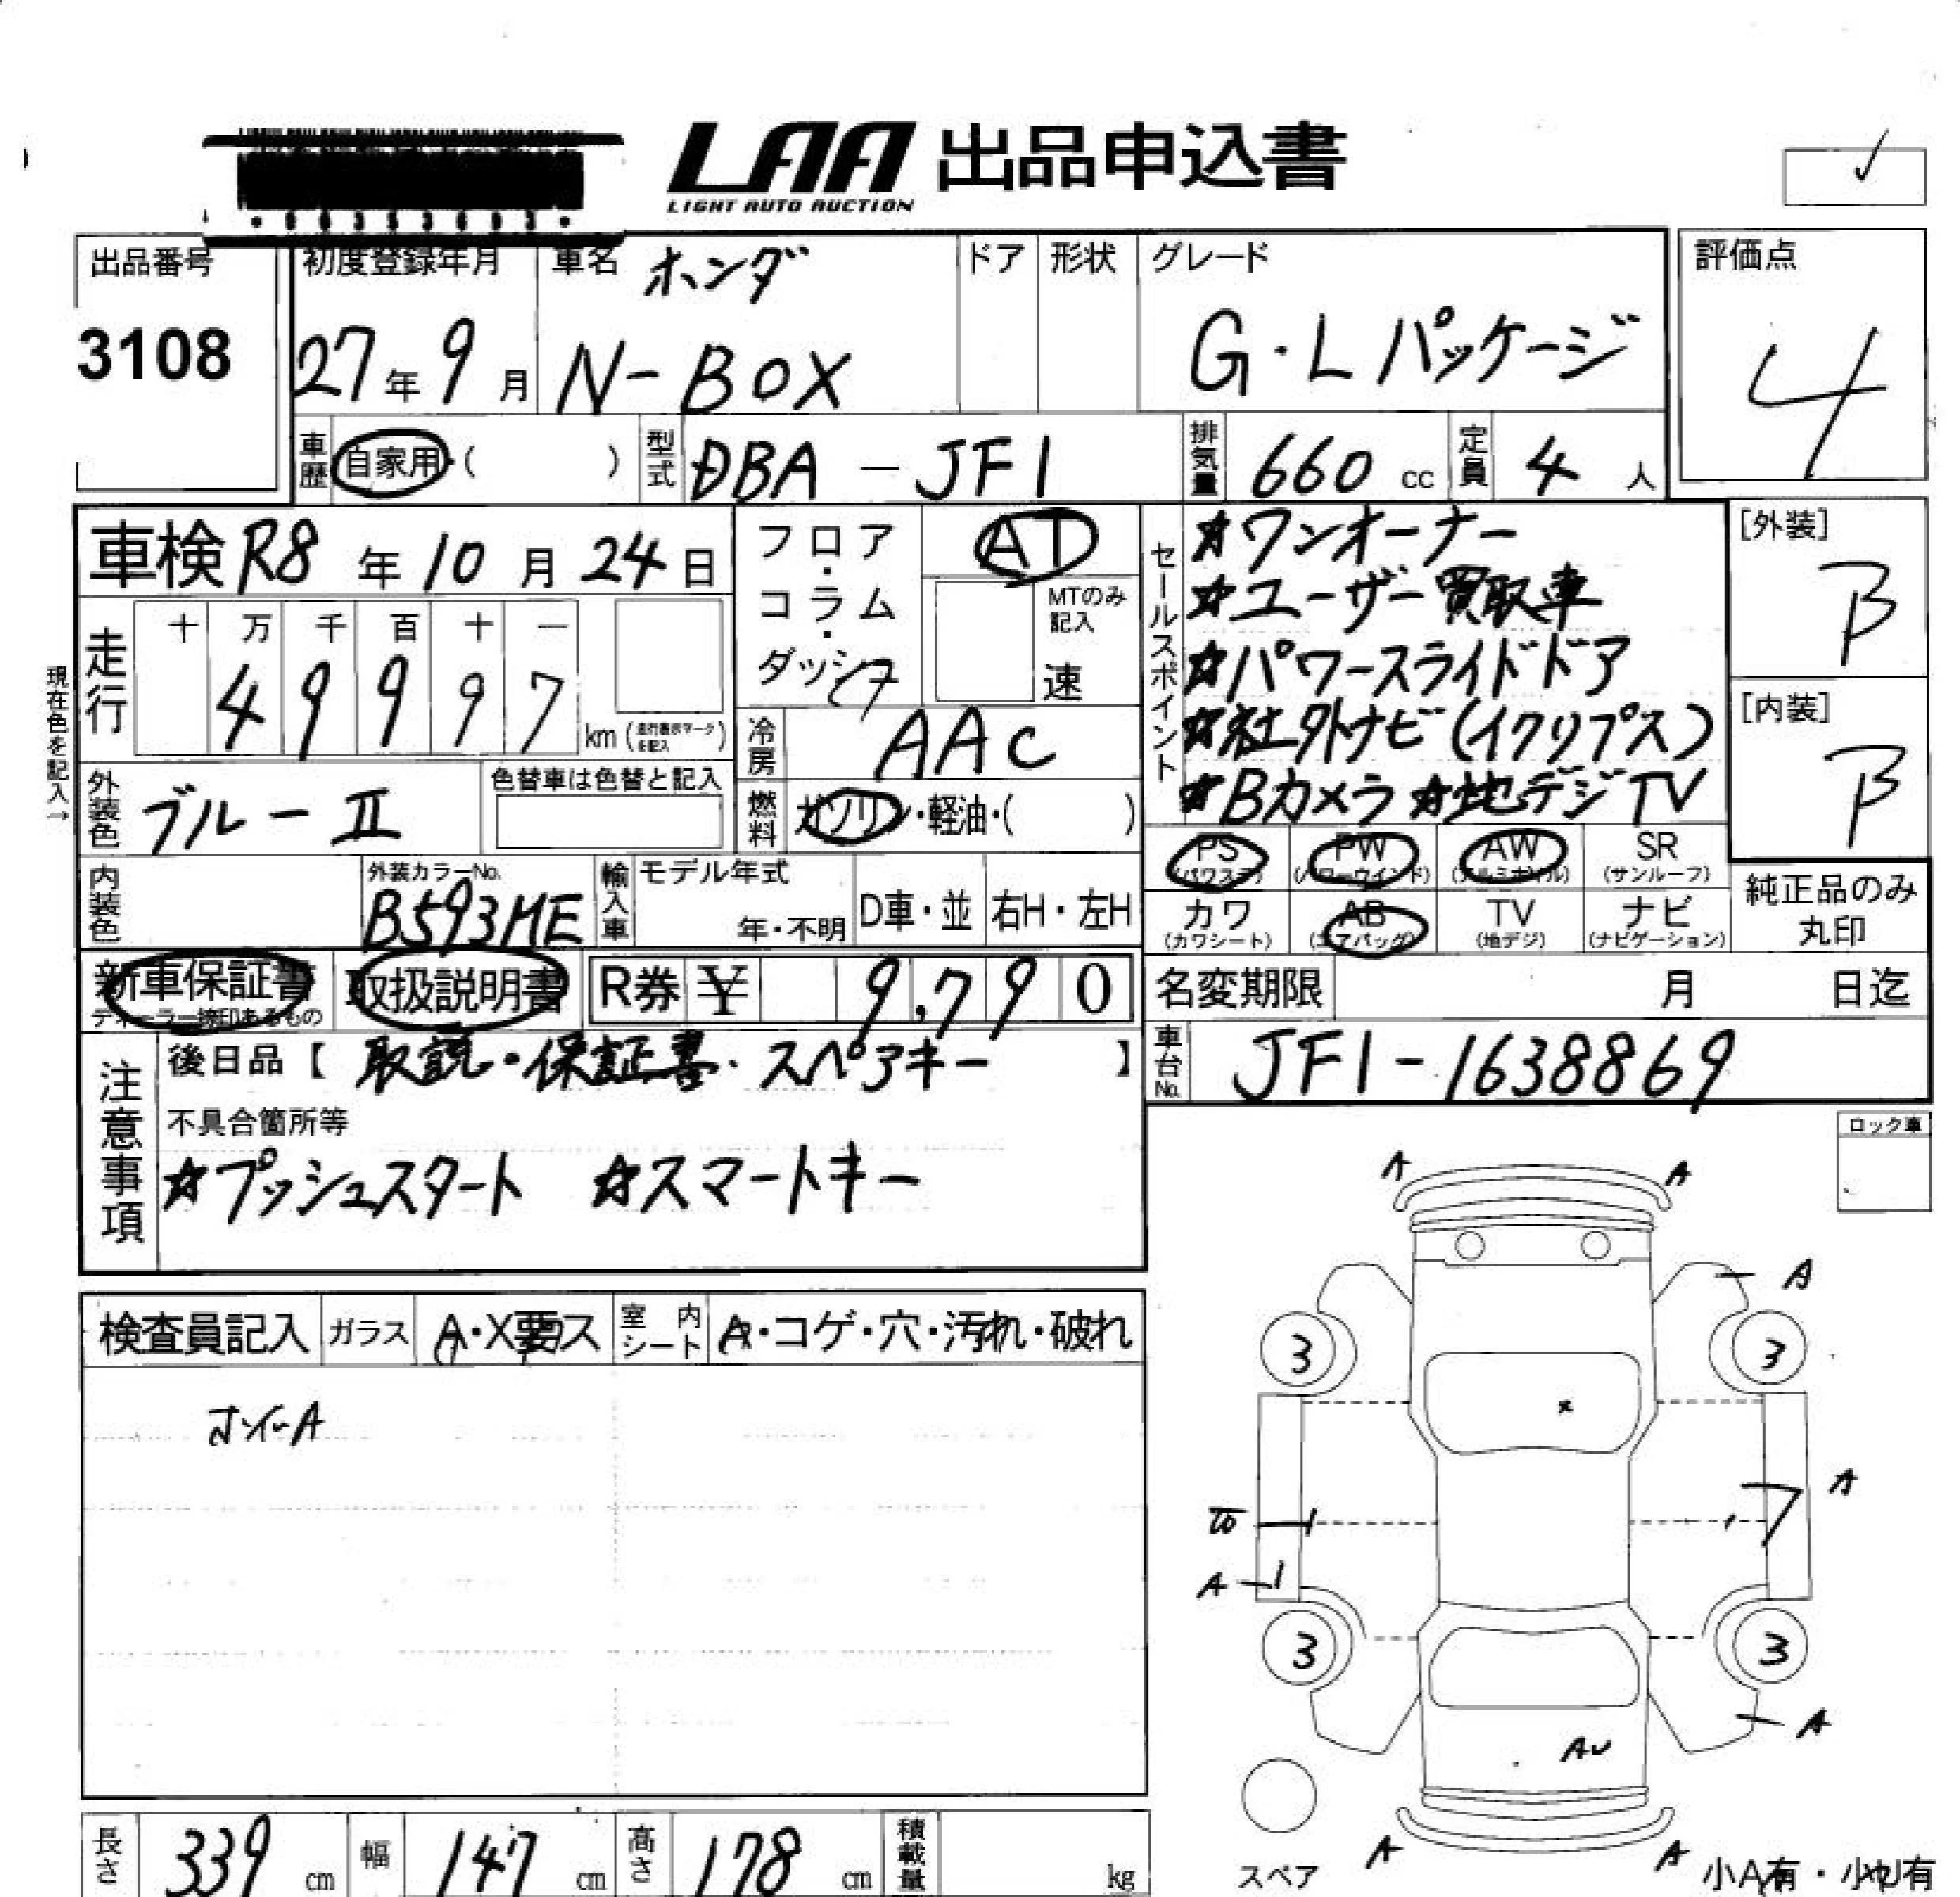 LAA 出品申込書
LIGHT AUTO AUCTION
出品番号 3108
初度登録年月 27年9月
車名 ホンダ N-BOX
ドア 形状
グレード G・Lパッケージ
評価点 4
車歴 自家用・( )
型式 DBA-JF1
排気量 660 cc
定員 4 人
車検 R8年10月24日
フロア・コラム・ダッシュ
AT
MTのみ記入 速
走行 十 万 千 百 十 一
4 9 9 9 7 km (走行表示マークを記入)
現在色を記入→
冷房 AAC
外装色 ブルーII
色替車は色替と記入
燃料 ガソリン・軽油・( )
内装色
外装カラーNo. B593ME
輸入車 モデル年式 年・不明
D車・並 右H・左H
セールスポイント
☆ワンオーナー
☆ユーザー買取車
☆パワースライドドア
☆社外ナビ(イクリプス)
☆Bカメラ ☆地デジTV
[外装] B
[内装] B
PS (パワステ) PW (パワーウインド) AW (アルミホイル) SR (サンルーフ)
カワ (カワシート) AB (エアバッグ) TV (地デジ) ナビ (ナビゲーション)
純正品のみ丸印
新車保証書 ディーラー捺印あるもの
取扱説明書
R券 ¥ 9,790
名変期限 月 日迄
車台No. JF1-1638869
注意事項
後日品【 取説・保証書・スペアキー 】
不具合箇所等
☆プッシュスタート ☆スマートキー
ロック車
検査員記入 ガラス A・X要ス 室内シート A・コゲ・穴・汚れ・破れ
A A
A
3 3
A
A
3 3
A
A A
スペア
小A有・小U有
長さ 339 cm 幅 147 cm 高さ 178 cm 積載量 kg